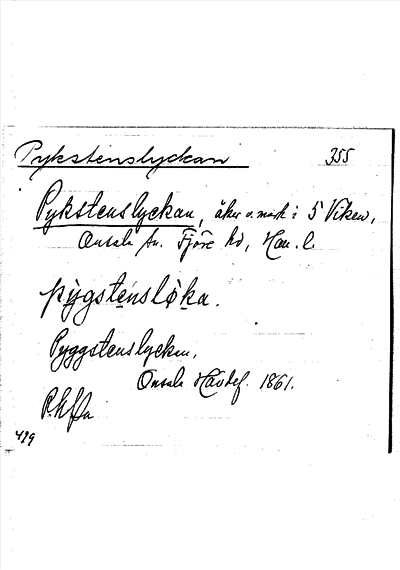 Pykstenslyckan 355
Pykstenslyckan, åker o. mark i 5 Viken,
Onsala sn. Fjäre hd, Hall. l.
pỳgstensløka.
Pyggstenslycken,
Onsala Havdef. 1861.
419